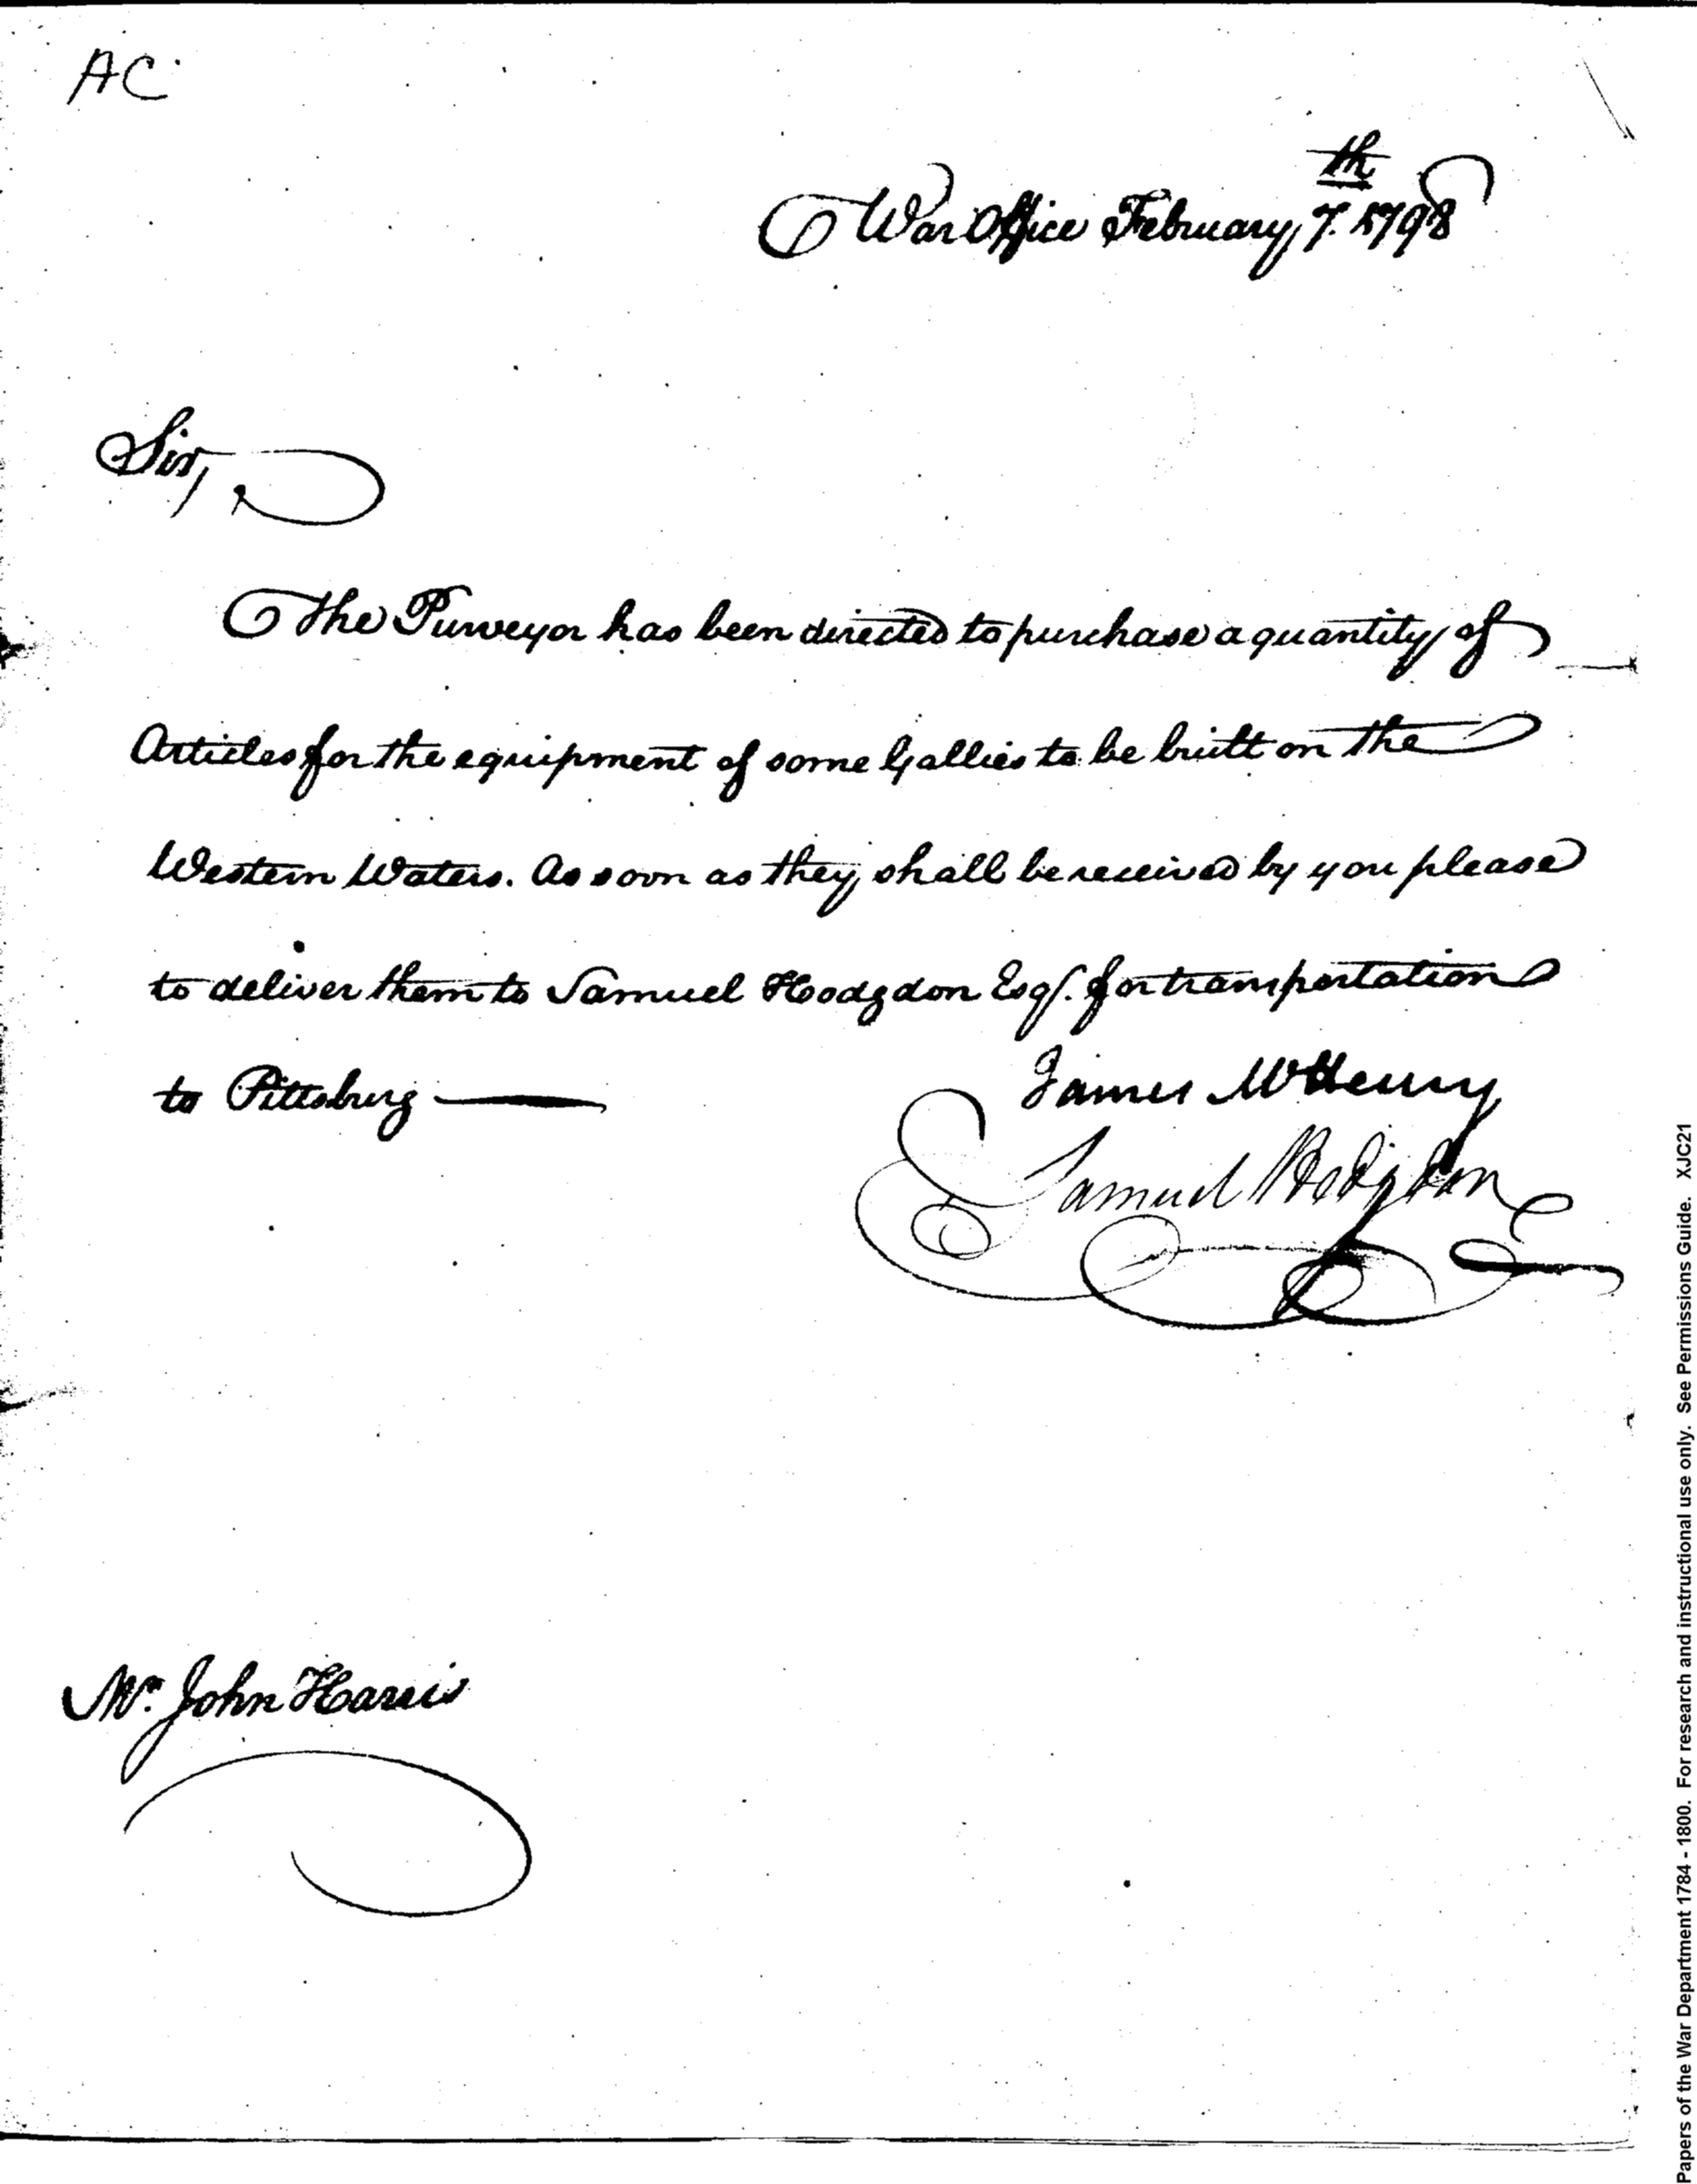 AC
War Office February 7.th 1798
Sir,
The Purveyor has been directed to purchase a quantity of
Articles for the equipment of some Gallies to be built on the
Western Waters. As soon as they shall be received by you please
to deliver them to Samuel Hodgdon Esqr. for transportation
to Pittsburg
James McHenry
Samuel Hodgdon
Mr. John Harris
Papers of the War Department 1784 - 1800. For research and instructional use only. See Permissions Guide. XJC21